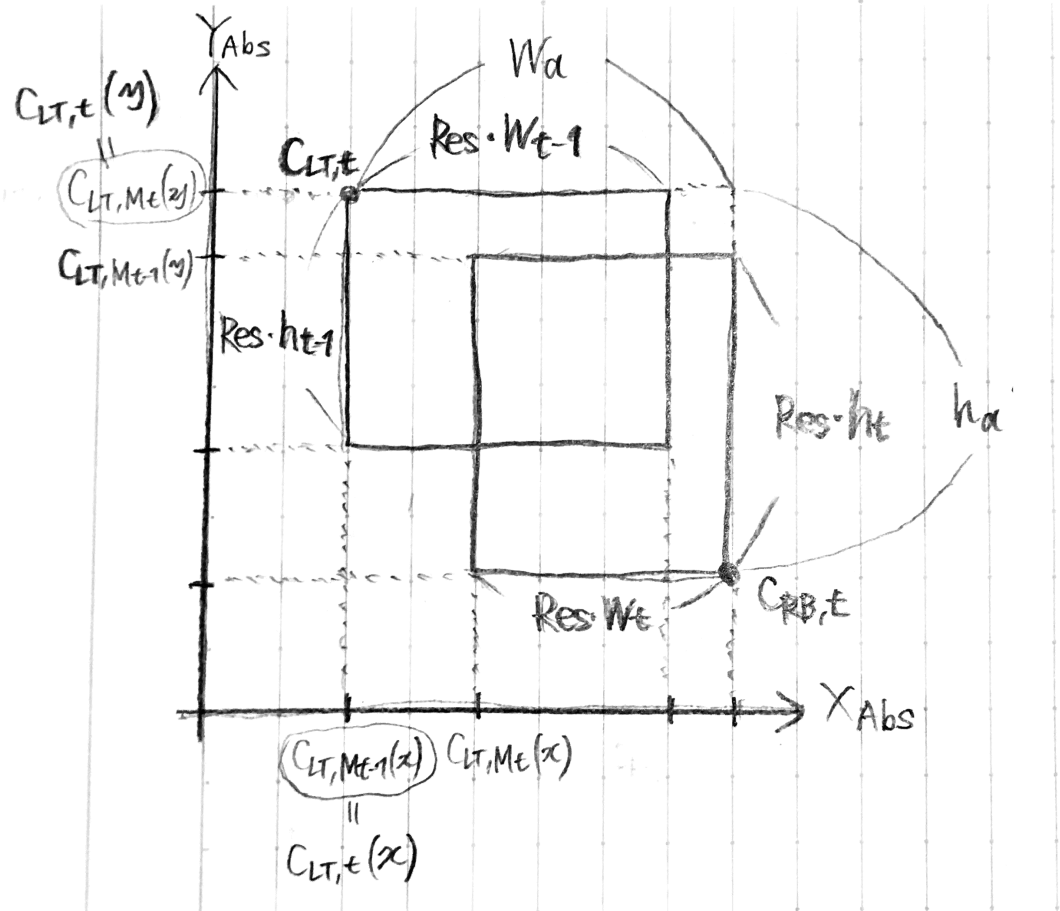 Y_Abs
C_LT,t(y)
=
C_LT,Mt(y)
C_LT,Mt-1(y)
W_a
Res·W_t-1
C_LT,t
Res·h_t-1
Res·h_t
h_a
Res·W_t
C_RB,t
X_Abs
C_LT,Mt-1(x) C_LT,Mt(x)
=
C_LT,t(x)